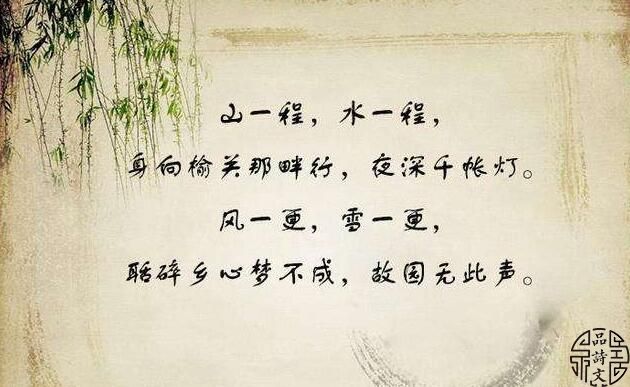 山一程，水一程，
身向榆关那畔行，夜深千帐灯。
风一更，雪一更，
聒碎乡心梦不成，故园无此声。
品詩文